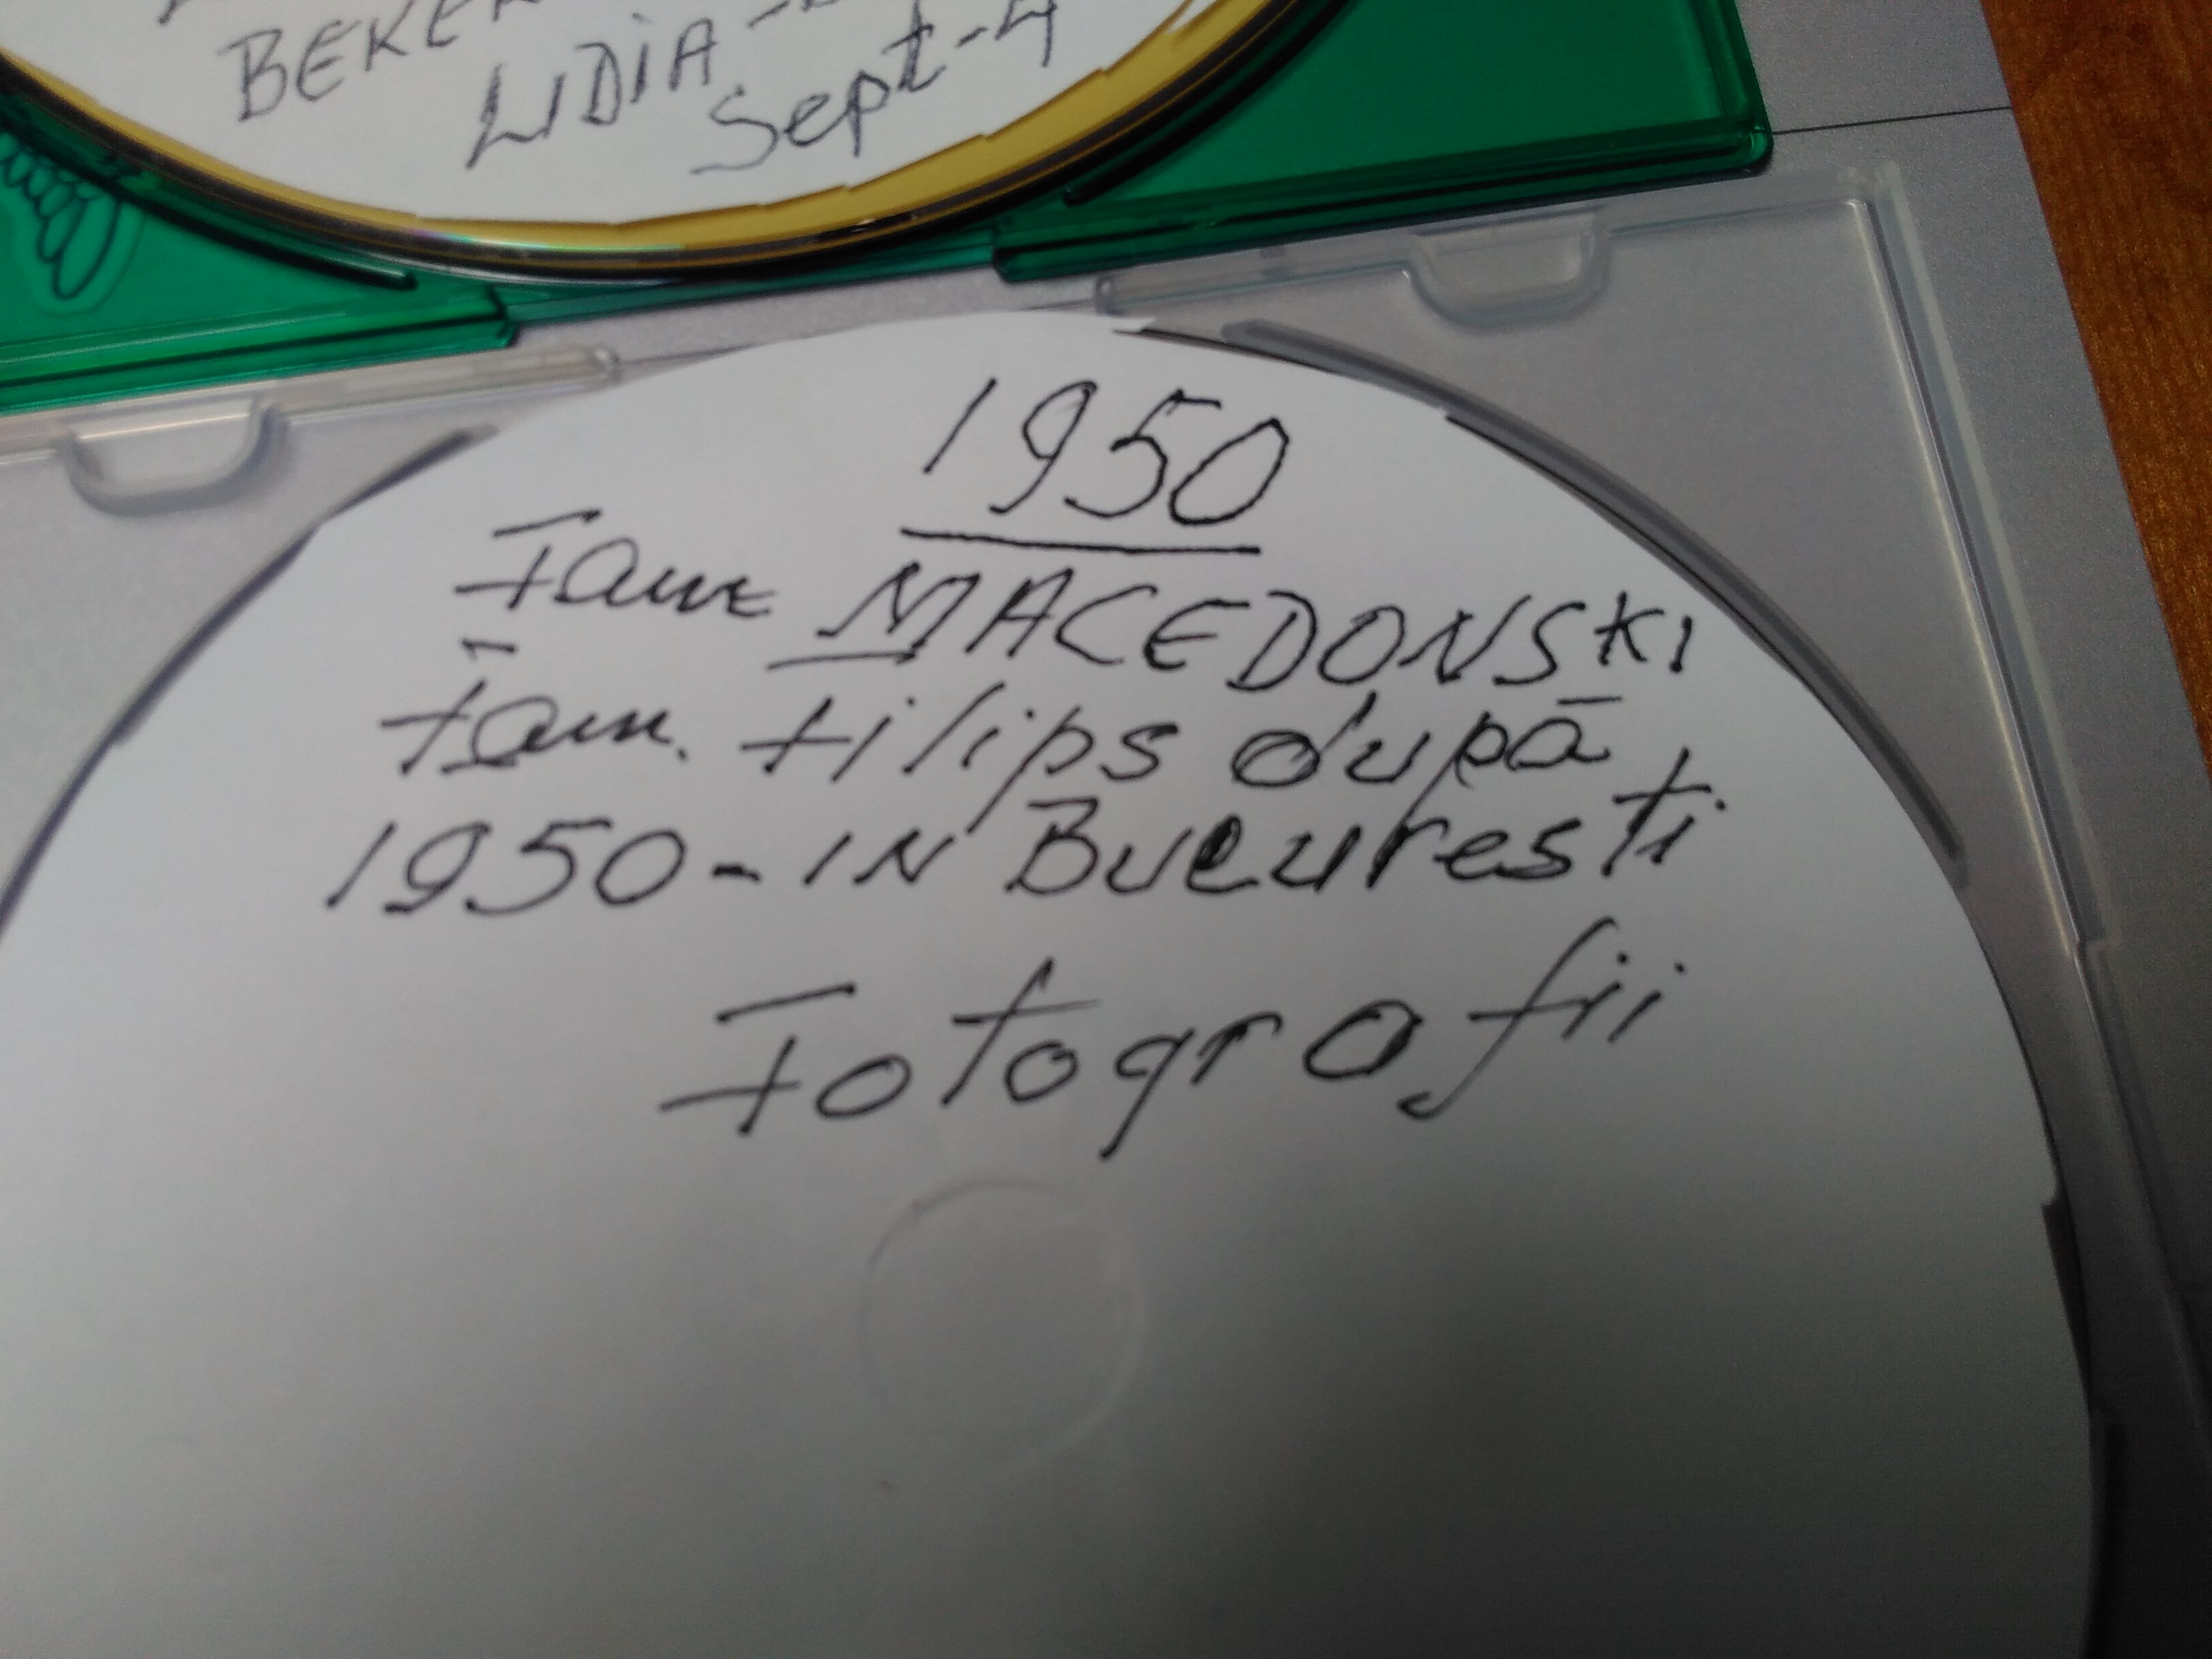 LIDIA
Sept-4
1950
Fam MACEDONSKI
Fam. Filips după
1950-IN Bucuresti
Fotografii